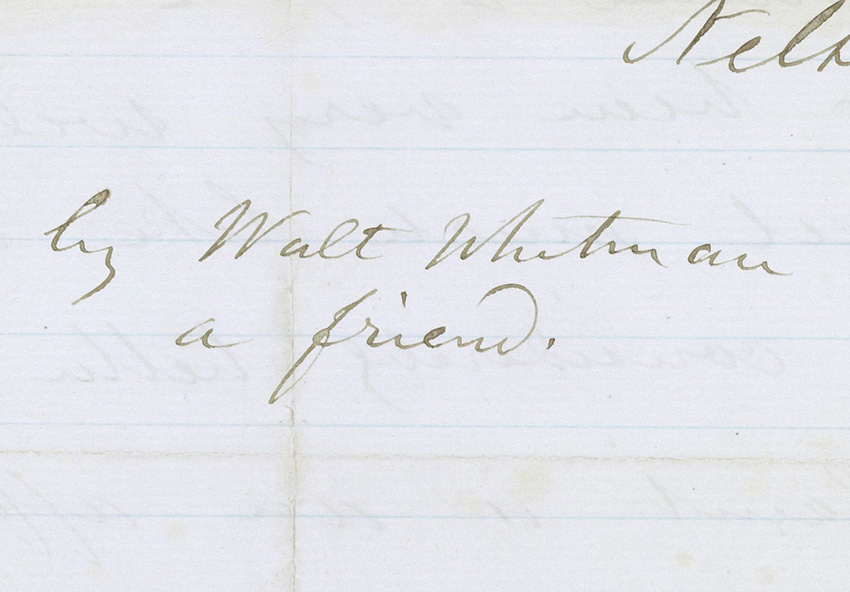 Nels
by Walt Whitman
a friend.